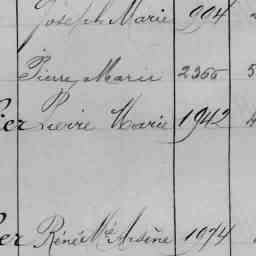 Joseph Marie 904
Pierre Marie 2366 5
ier Pierre Marie 1942 4
er Rénée Me Arsène 1074